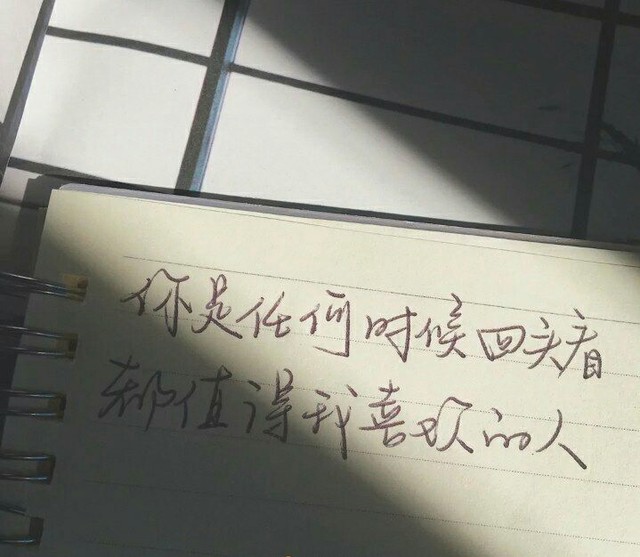 你是任何时候回头看
都值得我喜欢的人